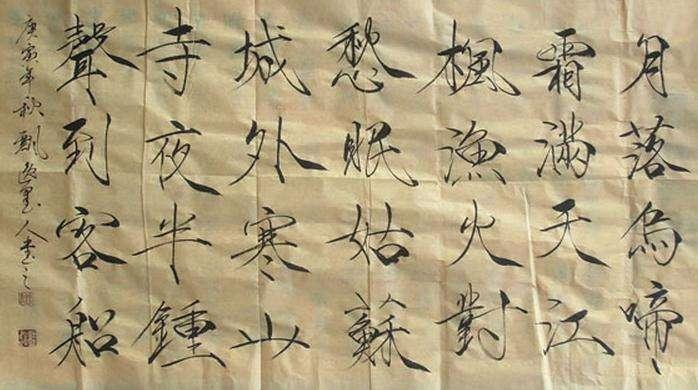 月落烏啼
霜滿天江
楓漁火對
愁眠姑蘇
城外寒山
寺夜半鍾
聲到客船
庚寅年秋 墨人書之